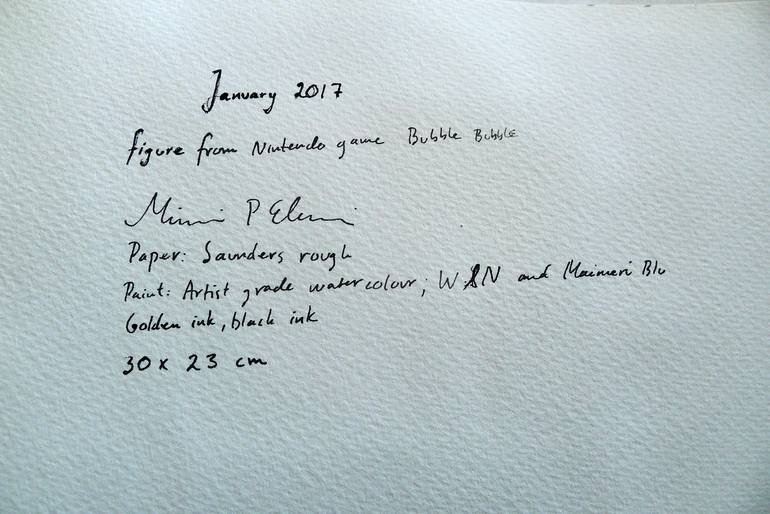 January 2017
figure from Nintendo game Bubble Bubble
Mimi P
Paper: Saunders rough
Paint: Artist grade watercolour; W&N and Maimeri Blu
Golden ink, black ink
30 x 23 cm